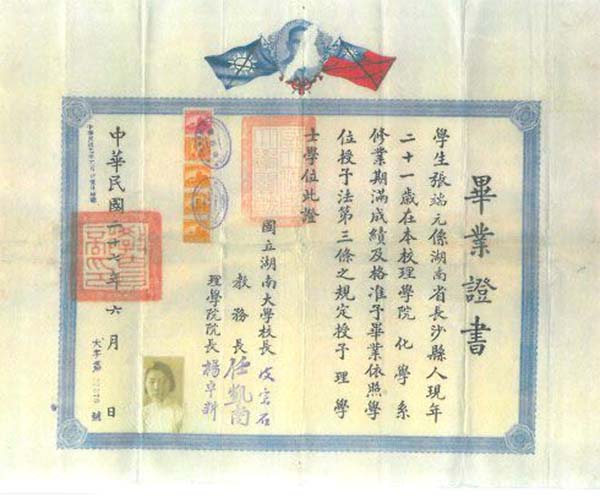 畢業證書
學生張端元係湖南省長沙縣人現年
二十一歲在本校理學院化學系
修業期滿成績及格准予畢業依照學
位授予法第三條之規定授予理學
士學位此證
國立湖南大學校長 皮宗石
教務長 任凱南
理學院院長 楊卓新
中華民國二十七年六月 日
大字第 號